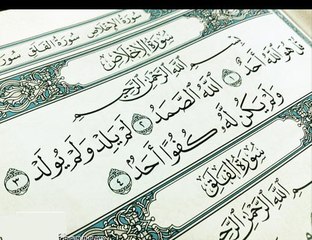 سُورَةُ الإِخْلَاصِ سُورَةُ الفَلَقِ
سُورَةُ الإِخْلَاصِ
بِسْمِ اللَّهِ الرَّحْمَٰنِ الرَّحِيمِ
قُلْ هُوَ اللَّهُ أَحَدٌ ١ اللَّهُ الصَّمَدُ ٢ لَمْ يَلِدْ وَلَمْ يُولَدْ ٣
وَلَمْ يَكُن لَّهُ كُفُوًا أَحَدٌ ٤
سُورَةُ الفَلَقِ
بِسْمِ اللَّهِ الرَّحْمَٰنِ الرَّحِيمِ